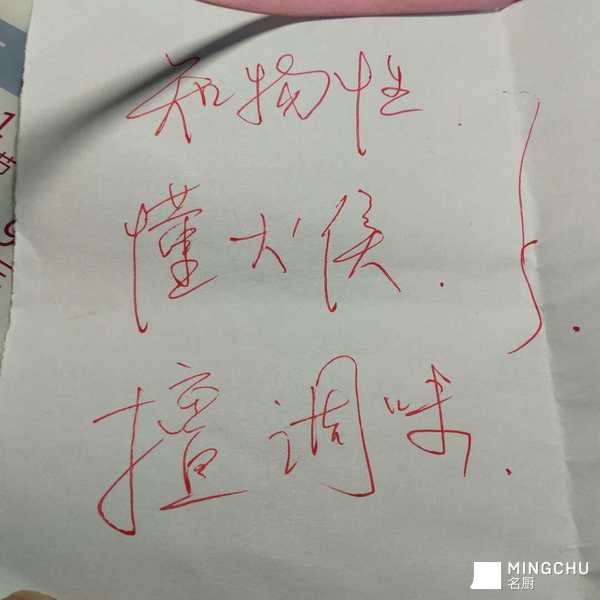 知物性.
懂火候.
擅调味.
MINGCHU
名厨